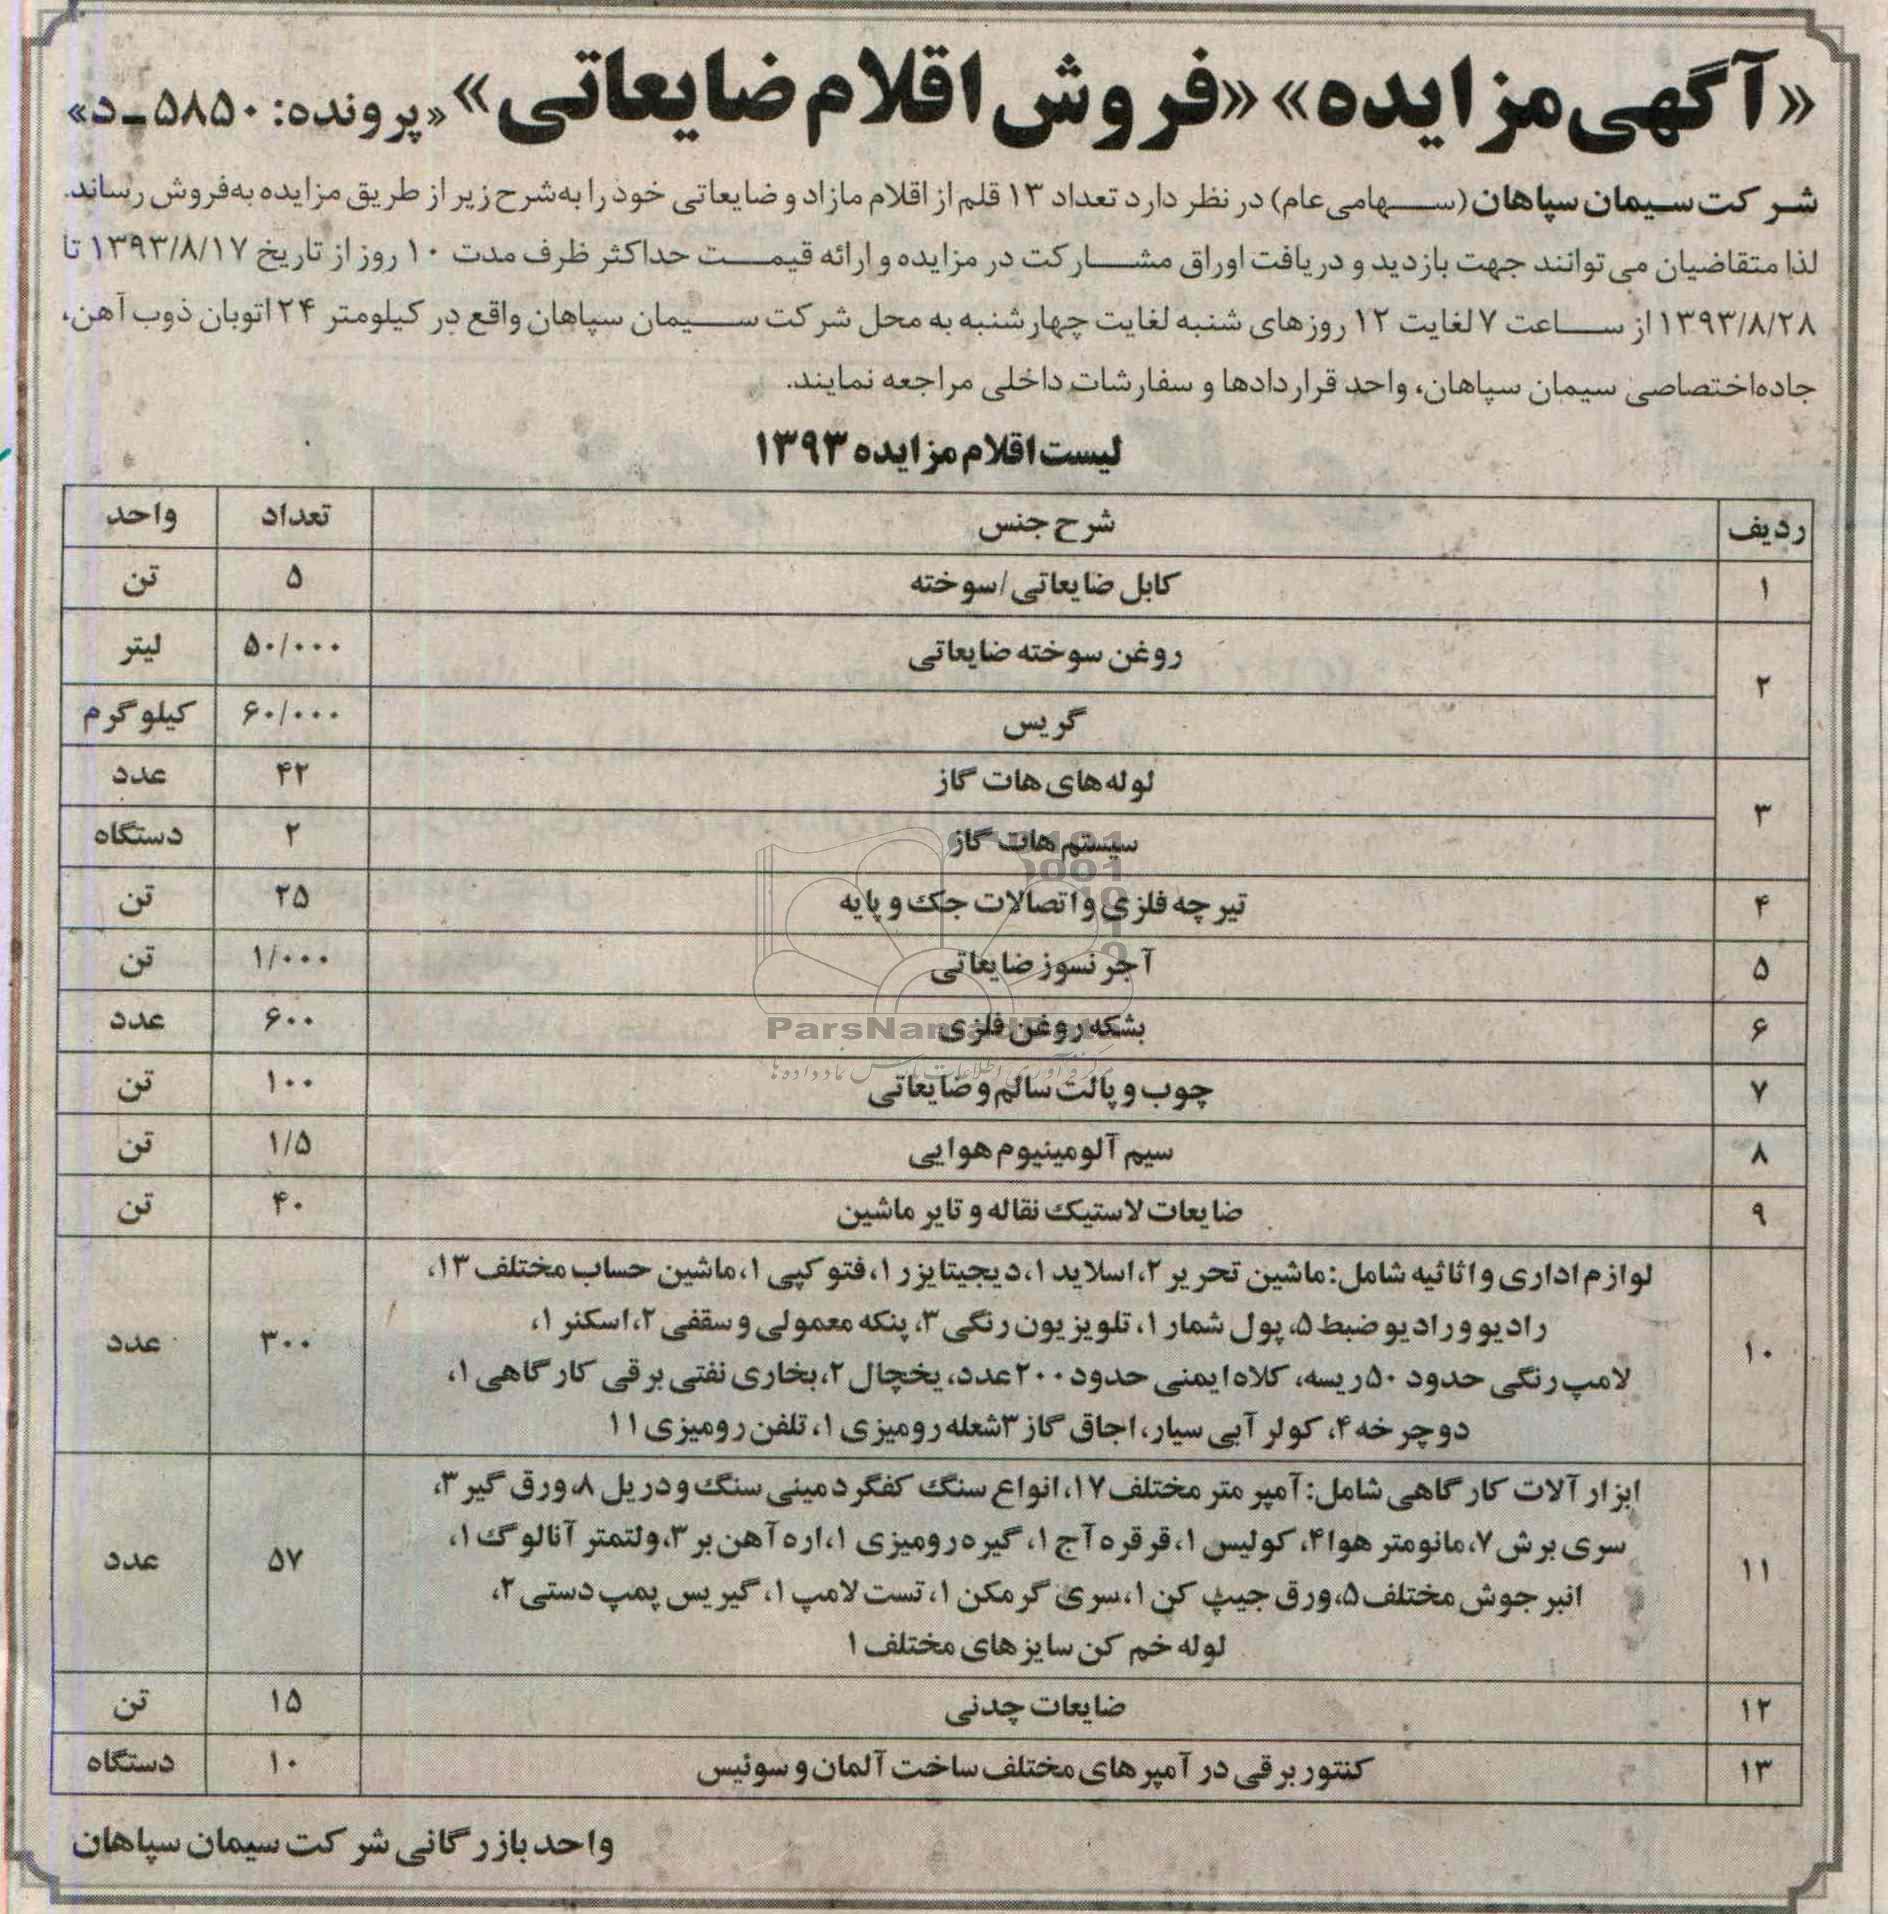 «آگهی مزایده» «فروش اقلام ضایعاتی» «پرونده: ۵۸۵۰ـد»
شرکت سیمان سپاهان (سهامی‌عام) در نظر دارد تعداد ۱۳ قلم از اقلام مازاد و ضایعاتی خود را به‌شرح زیر از طریق مزایده به‌فروش رساند.
لذا متقاضیان می‌توانند جهت بازدید و دریافت اوراق مشارکت در مزایده و ارائه قیمت حداکثر ظرف مدت ۱۰ روز از تاریخ ۱۳۹۳/۸/۱۷ تا
۱۳۹۳/۸/۲۸ از ساعت ۷ لغایت ۱۲ روزهای شنبه لغایت چهارشنبه به محل شرکت سیمان سپاهان واقع در کیلومتر ۲۴ اتوبان ذوب آهن،
جاده‌اختصاصی سیمان سپاهان، واحد قراردادها و سفارشات داخلی مراجعه نمایند.
لیست اقلام مزایده ۱۳۹۳
ردیف شرح جنس تعداد واحد
۱ کابل ضایعاتی/سوخته ۵ تن
۲ روغن سوخته ضایعاتی ۵۰/۰۰۰ لیتر
گریس ۶۰/۰۰۰ کیلوگرم
۳ لوله‌های هات گاز ۴۲ عدد
سیستم هات گاز ۲ دستگاه
۴ تیرچه فلزی و اتصالات جک و پایه ۲۵ تن
۵ آجر نسوز ضایعاتی ۱/۰۰۰ تن
۶ بشکه روغن فلزی ۶۰۰ عدد
۷ چوب و پالت سالم و ضایعاتی ۱۰۰ تن
۸ سیم آلومینیوم هوایی ۱/۵ تن
۹ ضایعات لاستیک نقاله و تایر ماشین ۴۰ تن
۱۰ لوازم اداری و اثاثیه شامل: ماشین تحریر ۲، اسلاید ۱، دیجیتایزر ۱، فتوکپی ۱، ماشین حساب مختلف ۱۳، ۳۰۰ عدد
رادیو و رادیو ضبط ۵، پول شمار ۱، تلویزیون رنگی ۳، پنکه معمولی و سقفی ۲، اسکنر ۱،
لامپ رنگی حدود ۵۰ ریسه، کلاه ایمنی حدود ۲۰۰ عدد، یخچال ۲، بخاری نفتی برقی کارگاهی ۱،
دوچرخه ۴، کولر آبی سیار، اجاق گاز ۳ شعله رومیزی ۱، تلفن رومیزی ۱۱
۱۱ ابزارآلات کارگاهی شامل: آمپر متر مختلف ۱۷، انواع سنگ کفگرد مینی سنگ و دریل ۸، ورق گیر ۳، ۵۷ عدد
سری برش ۷، مانومتر هوا ۴، کولیس ۱، قرقره آج ۱، گیره رومیزی ۱، اره آهن بر ۳، ولتمتر آنالوگ ۱،
انبر جوش مختلف ۵، ورق جیپ کن ۱، سری گرمکن ۱، تست لامپ ۱، گیریس پمپ دستی ۲،
لوله خم کن سایزهای مختلف ۱
۱۲ ضایعات چدنی ۱۵ تن
۱۳ کنتور برقی در آمپرهای مختلف ساخت آلمان و سوئیس ۱۰ دستگاه
واحد بازرگانی شرکت سیمان سپاهان